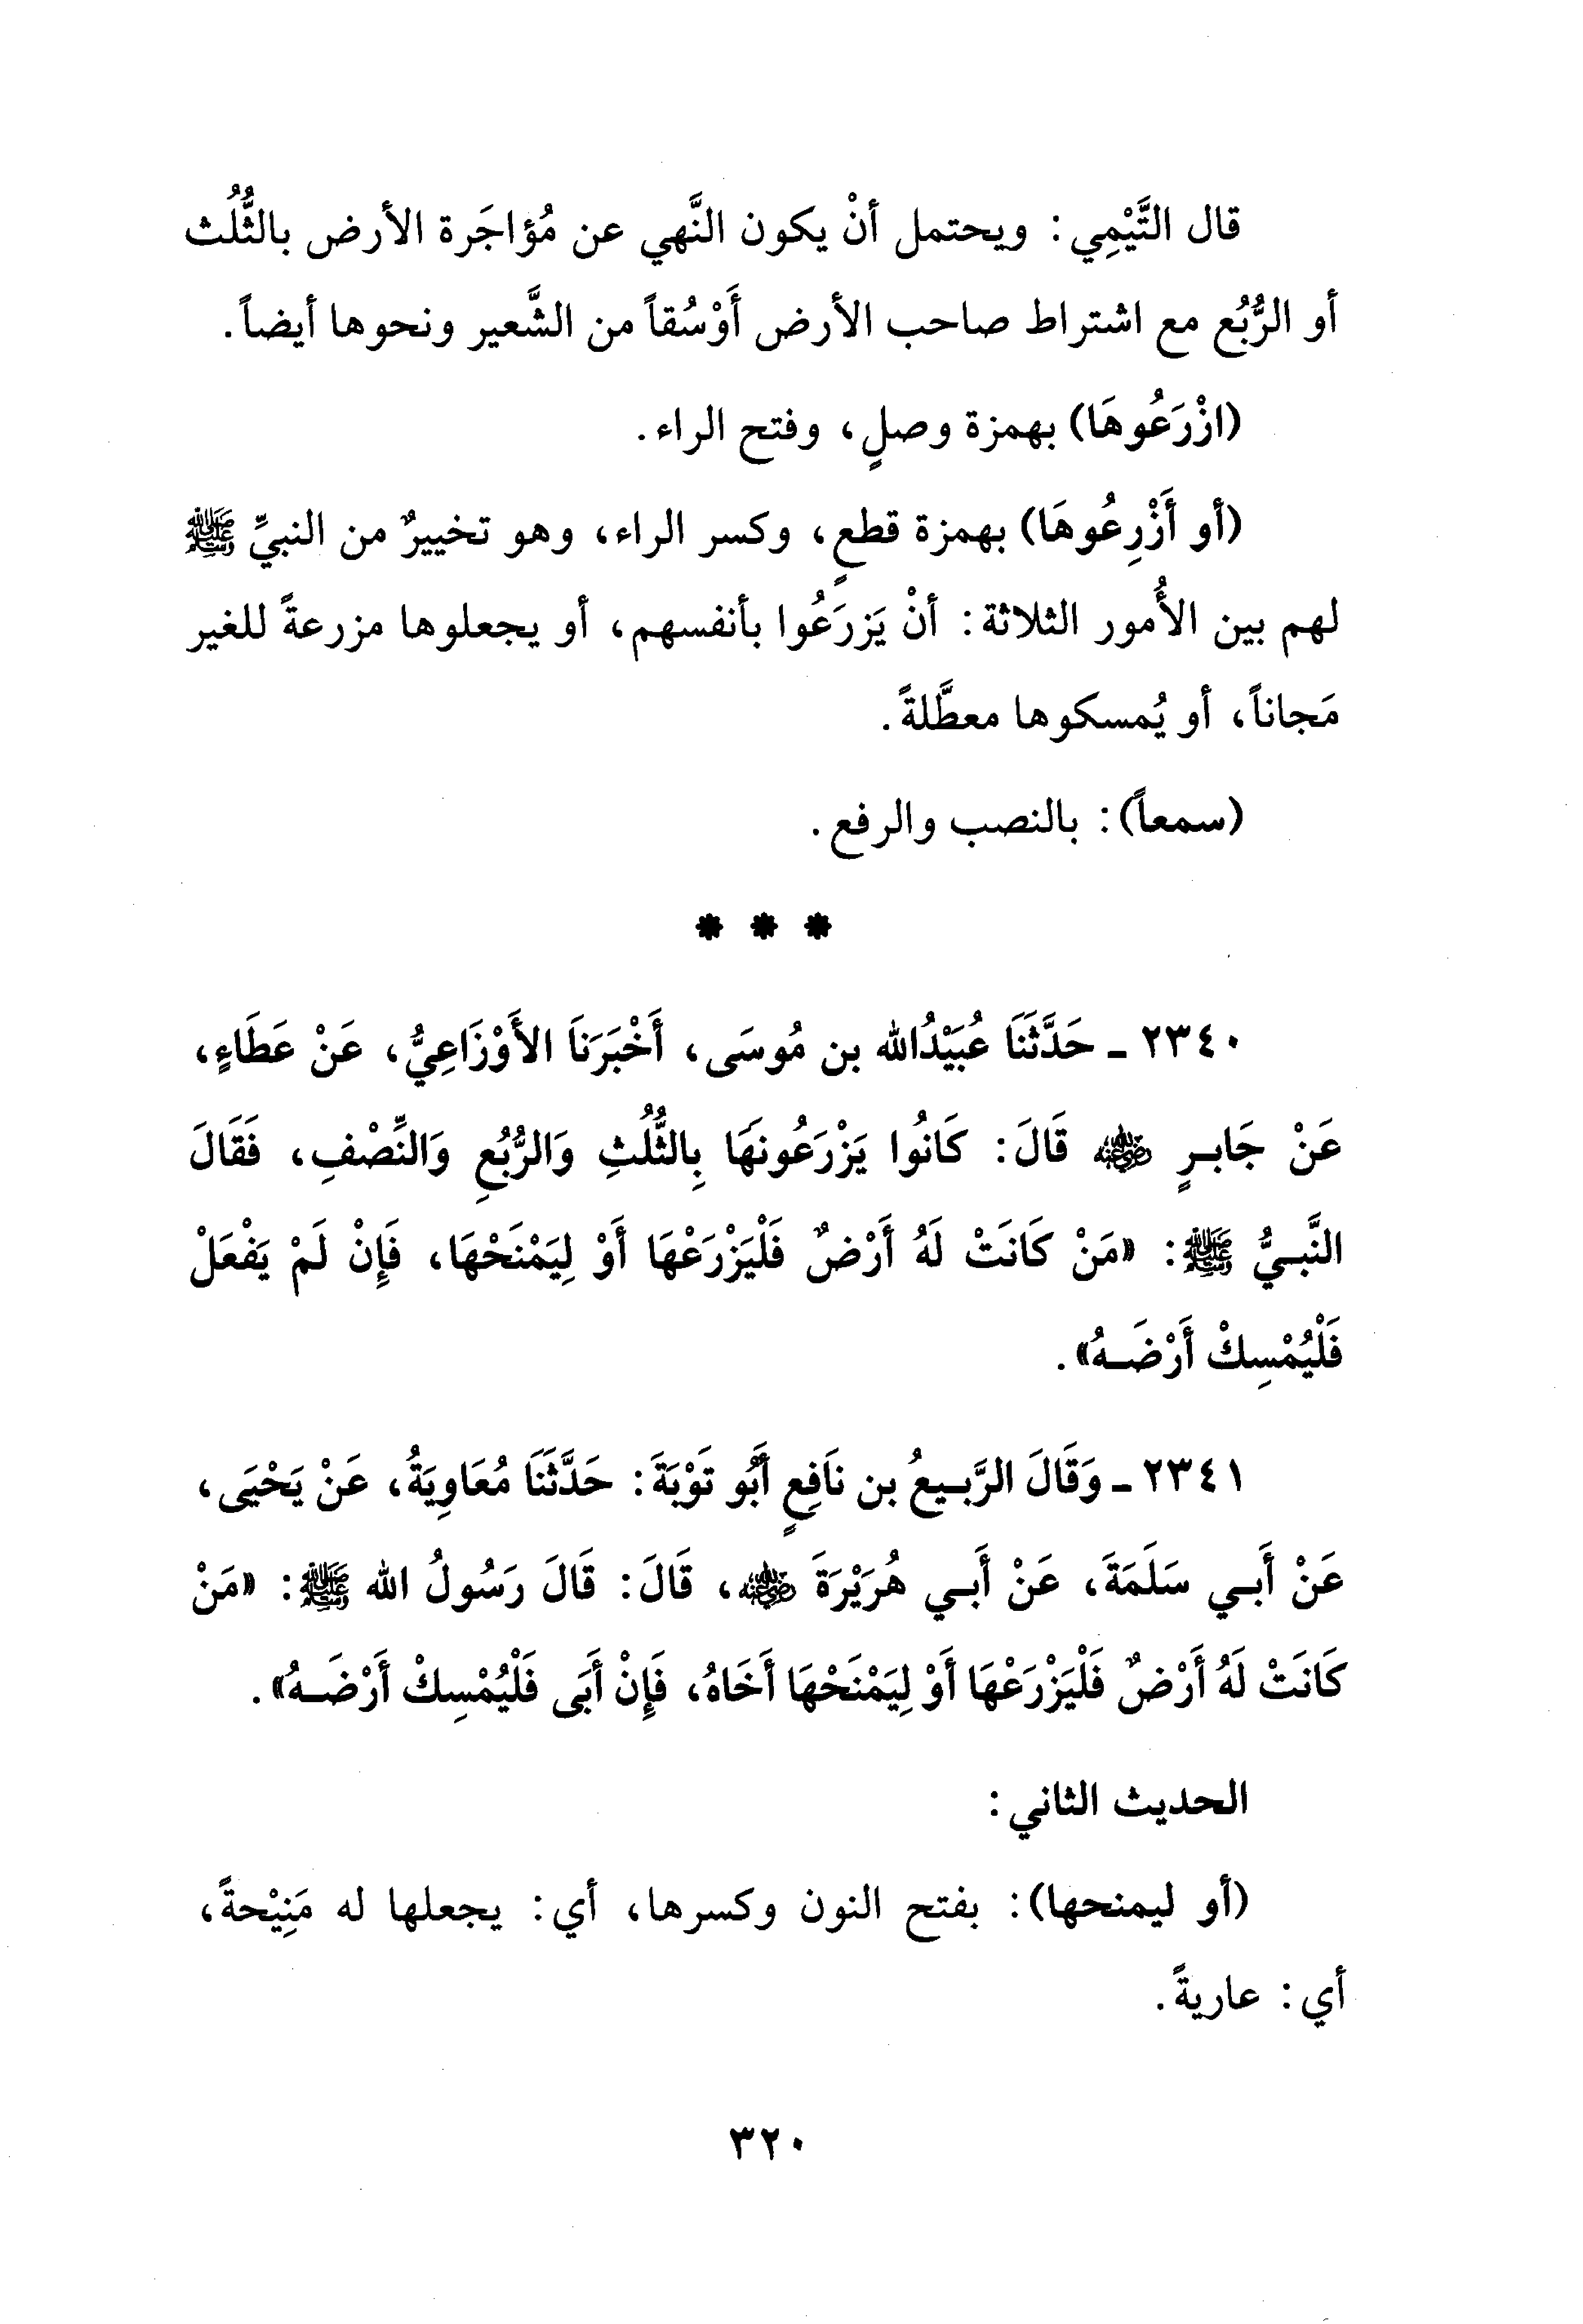 قال التَّيْمِي: ويحتمل أنْ يكون النَّهي عن مُؤاجَرة الأرض بالثُّلُث
أو الرُّبُع مع اشتراط صاحب الأرض أَوْسُقاً من الشَّعير ونحوها أيضاً.
(ازْرَعُوهَا) بهمزة وصلٍ، وفتح الراء.
(أو أَزْرِعُوهَا) بهمزة قطعٍ، وكسر الراء، وهو تخييرٌ من النبيِّ ﷺ
لهم بين الأُمور الثلاثة: أنْ يَزرَعُوا بأنفسهم، أو يجعلوها مزرعةً للغير
مَجاناً، أو يُمسكوها معطَّلةً.
(سمعاً): بالنصب والرفع.
* * *
٢٣٤٠ ـ حَدَّثَنَا عُبَيْدُالله بن مُوسَى، أَخْبَرَنَا الأَوْزَاعِيُّ، عَنْ عَطَاءٍ،
عَنْ جَابِرٍ ﵁ قَالَ: كَانُوا يَزْرَعُونَهَا بِالثُّلُثِ وَالرُّبُعِ وَالنِّصْفِ، فَقَالَ
النَّبِيُّ ﷺ: «مَنْ كَانَتْ لَهُ أَرْضٌ فَلْيَزْرَعْهَا أَوْ لِيَمْنَحْهَا، فَإِنْ لَمْ يَفْعَلْ
فَلْيُمْسِكْ أَرْضَهُ».
٢٣٤١ ـ وَقَالَ الرَّبِيعُ بن نَافِعٍ أَبُو تَوْبَةَ: حَدَّثَنَا مُعَاوِيَةُ، عَنْ يَحْيَى،
عَنْ أَبِي سَلَمَةَ، عَنْ أَبِي هُرَيْرَةَ ﵁، قَالَ: قَالَ رَسُولُ الله ﷺ: «مَنْ
كَانَتْ لَهُ أَرْضٌ فَلْيَزْرَعْهَا أَوْ لِيَمْنَحْهَا أَخَاهُ، فَإِنْ أَبَى فَلْيُمْسِكْ أَرْضَهُ».
الحديث الثاني:
(أو ليمنحها): بفتح النون وكسرها، أي: يجعلها له مَنِيْحةً،
أي: عاريةً.
٣٢٠